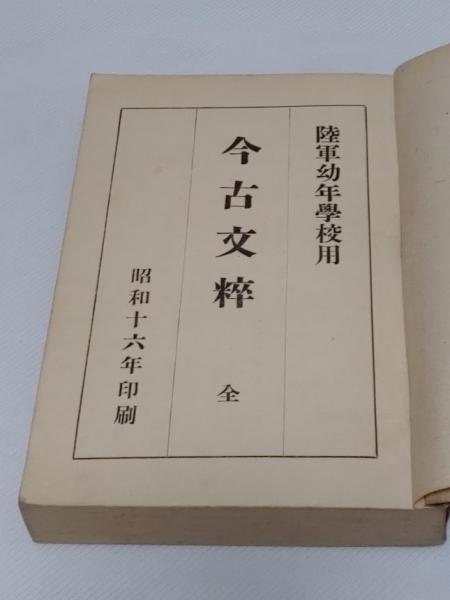 陸軍幼年學校用
今古文粹 全
昭和十六年印刷